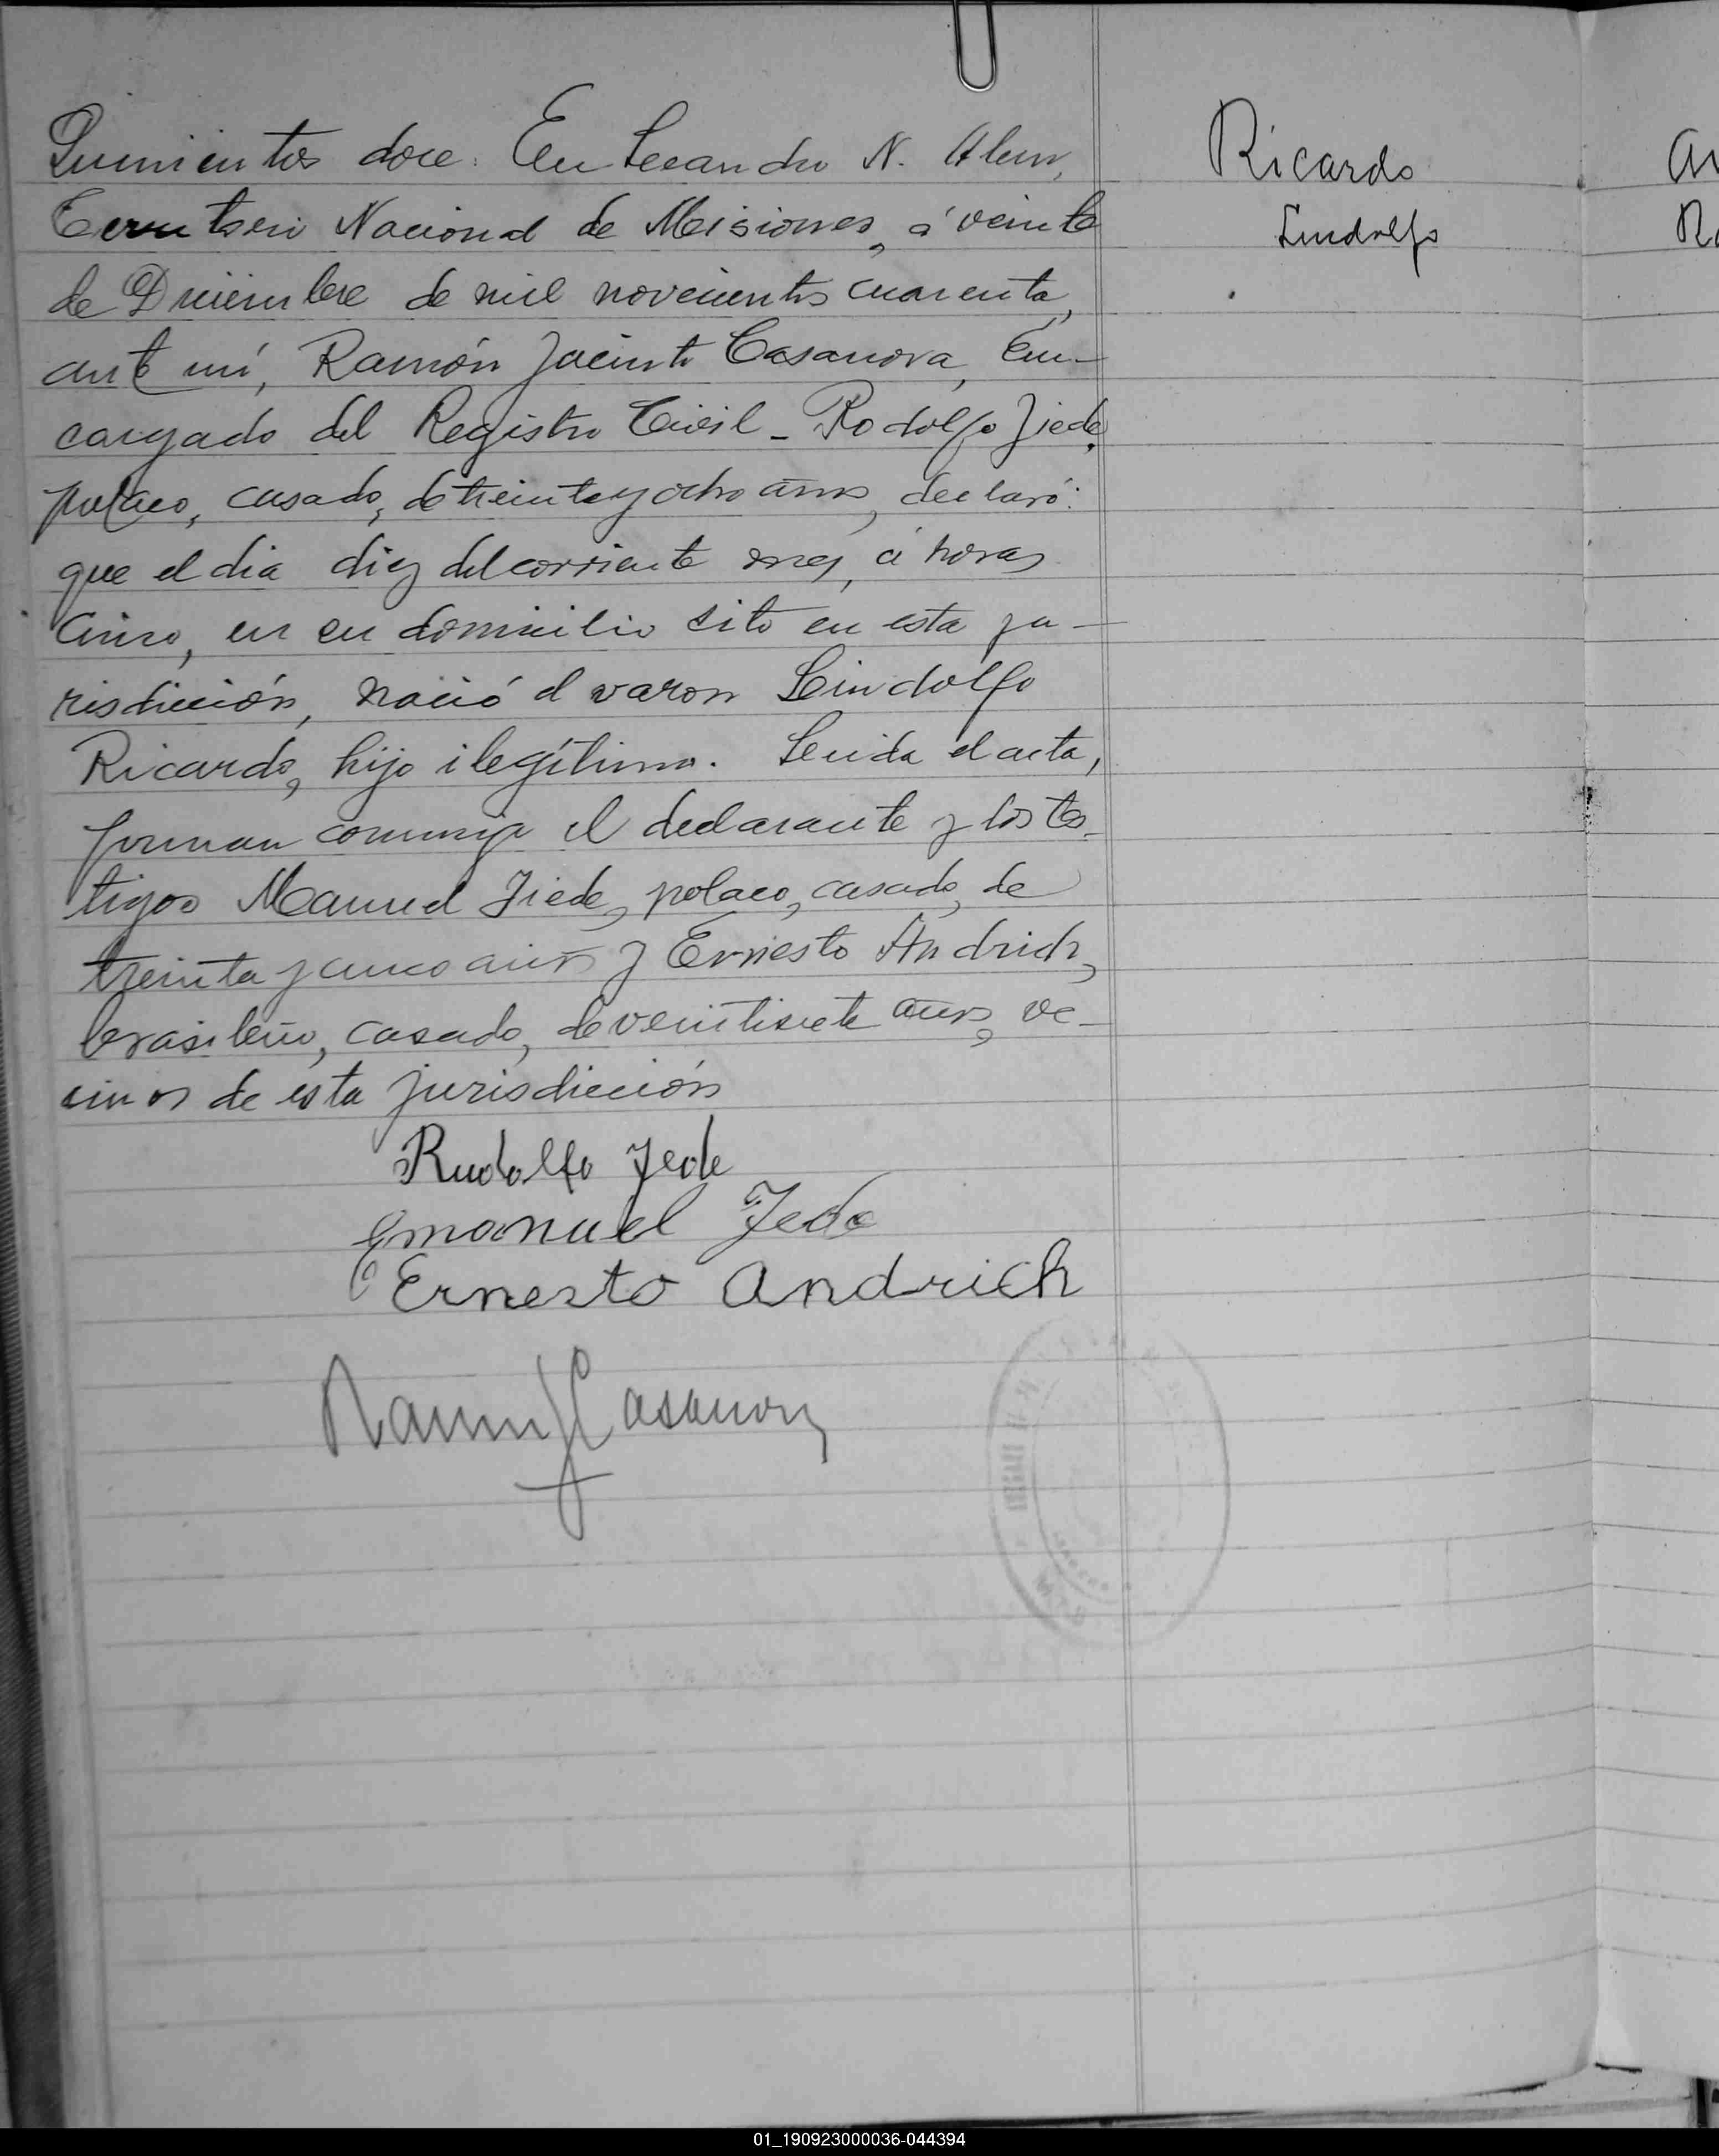 Quinientos doce. En Leandro N. Alem,
Territorio Nacional de Misiones, á veinte
de Diciembre de mil novecientos cuarenta,
ante mí, Ramón Jacinto Casanova, En-
cargado del Registro Civil - Rodolfo Jiede,
polaco, casado, de treinta y ocho años, declaró:
que el dia diez del corriente mes, á horas
cinco, en su domicilio sito en esta ju-
risdicción, nació el varon Lindolfo
Ricardo, hijo ilegítimo. Leida el acta,
firman conmigo el declarante y los tes-
tigos Manuel Jiede, polaco, casado, de
treinta y cinco años y Ernesto Andrich,
brasileño, casado, de veintisiete años, ve-
cinos de esta jurisdicción
Rudolfo Jede
Emanuel Jede
Ernesto Andrich
Ramón J Casanova
Ricardo
Lindolfo
01_190923000036-044394